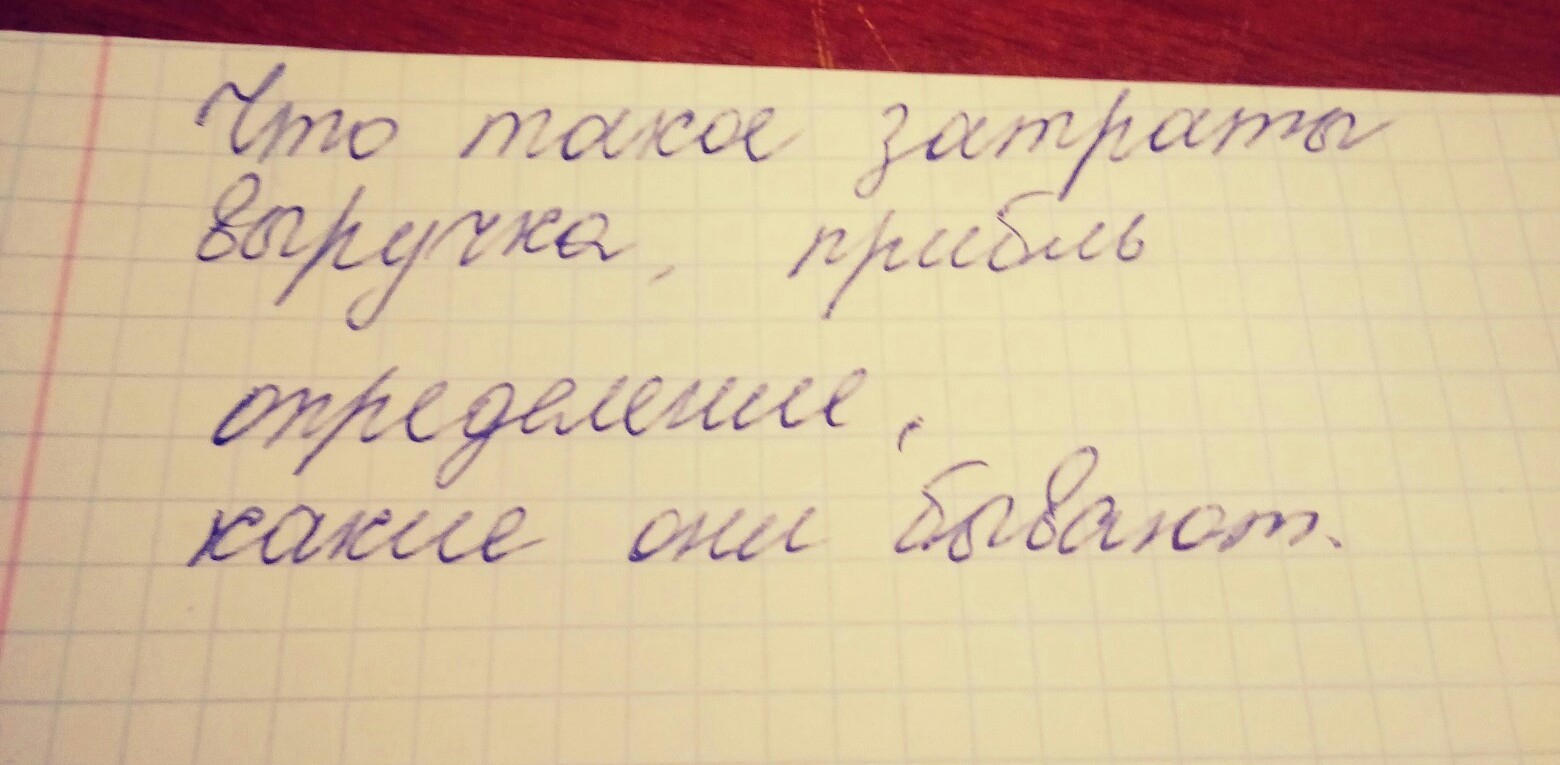 Что такое затраты
выручка, прибль
определение,
какие они бывают.